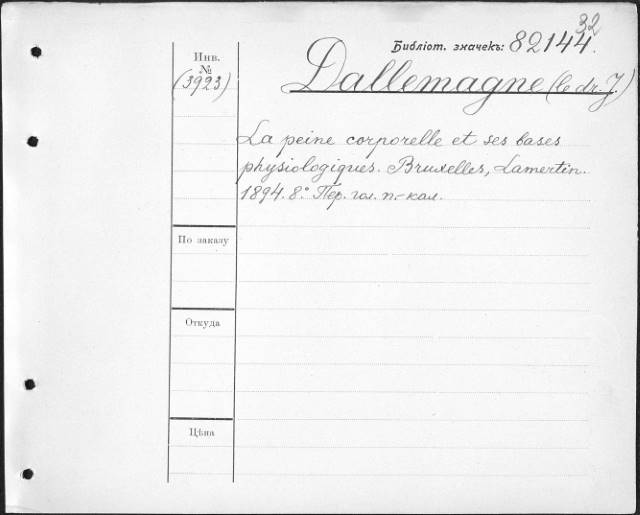 32
Библіот. значекъ: 82144.
Инв.
№
(3923)
Dallemagne (le dr. J.)
La peine corporelle et ses bases
physiologiques. Bruxelles, Lamertin.
1894. 8.° Пер. гол. п.-кал.
По заказу
Откуда
Цѣна